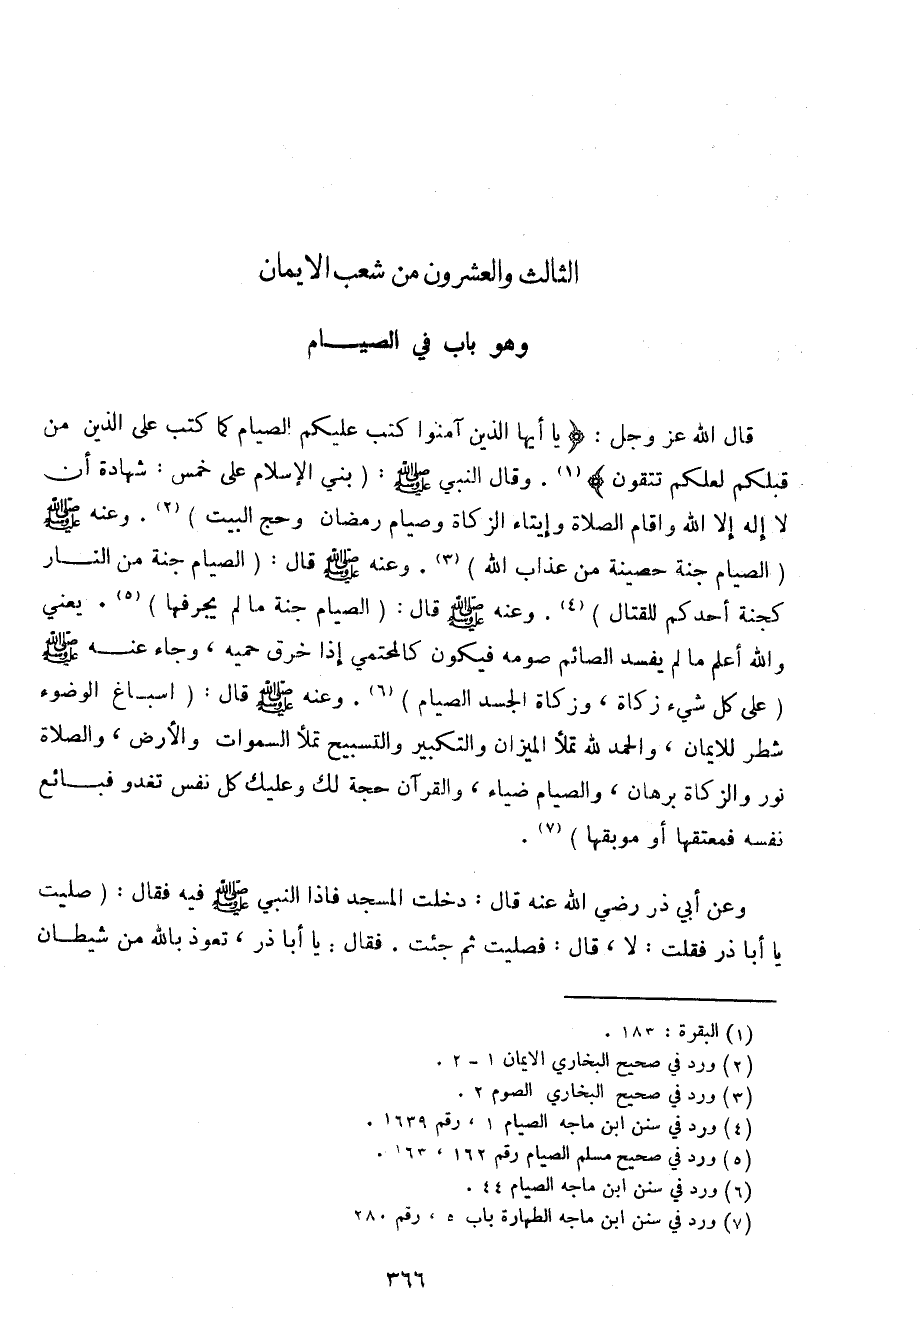 الثالث والعشرون من شعب الايمان
وهو باب في الصيـــام
قال الله عز وجل : ﴿ يا أيها الذين آمنوا كتب عليكم الصيام كما كتب على الذين من
قبلكم لعلكم تتقون ﴾ (١) . وقال النبي ﷺ : ( بني الإسلام على خمس : شهادة أن
لا إله إلا الله واقام الصلاة وإيتاء الزكاة وصيام رمضان وحج البيت ) (٢) . وعنه ﷺ
( الصيام جنة حصينة من عذاب الله ) (٣) . وعنه ﷺ قال : ( الصيام جنة من النـــار
كجنة أحدكم للقتال ) (٤) . وعنه ﷺ قال : ( الصيام جنة ما لم يجرفها ) (٥) . يعني
والله أعلم ما لم يفسد الصائم صومه فيكون كالمحتمي إذا خرق حميه ، وجاء عنـــه ﷺ
( على كل شيء زكاة ، وزكاة الجسد الصيام ) (٦) . وعنه ﷺ قال : ( اسبـاغ الوضوء
شطر للايمان ، والحمد لله تملأ الميزان والتكبير والتسبيح تملأ السموات والأرض ، والصلاة
نور والزكاة برهان ، والصيام ضياء ، والقرآن حجة لك وعليك كل نفس تغدو فبـــائع
نفسه فمعتقها أو موبقها ) (٧) .
وعن أبي ذر رضي الله عنه قال : دخلت المسجد فاذا النبي ﷺ فيه فقال : ( صليت
يا أبا ذر فقلت : لا ، قال : فصليت ثم جئت . فقال : يا أبا ذر ، تعوذ بالله من شيطـان
(١) البقرة : ١٨٣ .
(٢) ورد في صحيح البخاري الايمان ١ – ٢ .
(٣) ورد في صحيح البخاري الصوم ٢ .
(٤) ورد في سنن ابن ماجه الصيام ١ ، رقم ١٦٣٩ .
(٥) ورد في صحيح مسلم الصيام رقم ١٦٢ ،
(٦) ورد في سنن ابن ماجه الصيام ٤٤ .
(٧) ورد في سنن ابن ماجه الطهارة باب ٥ ، رقم ٢٨٠
٣٦٦